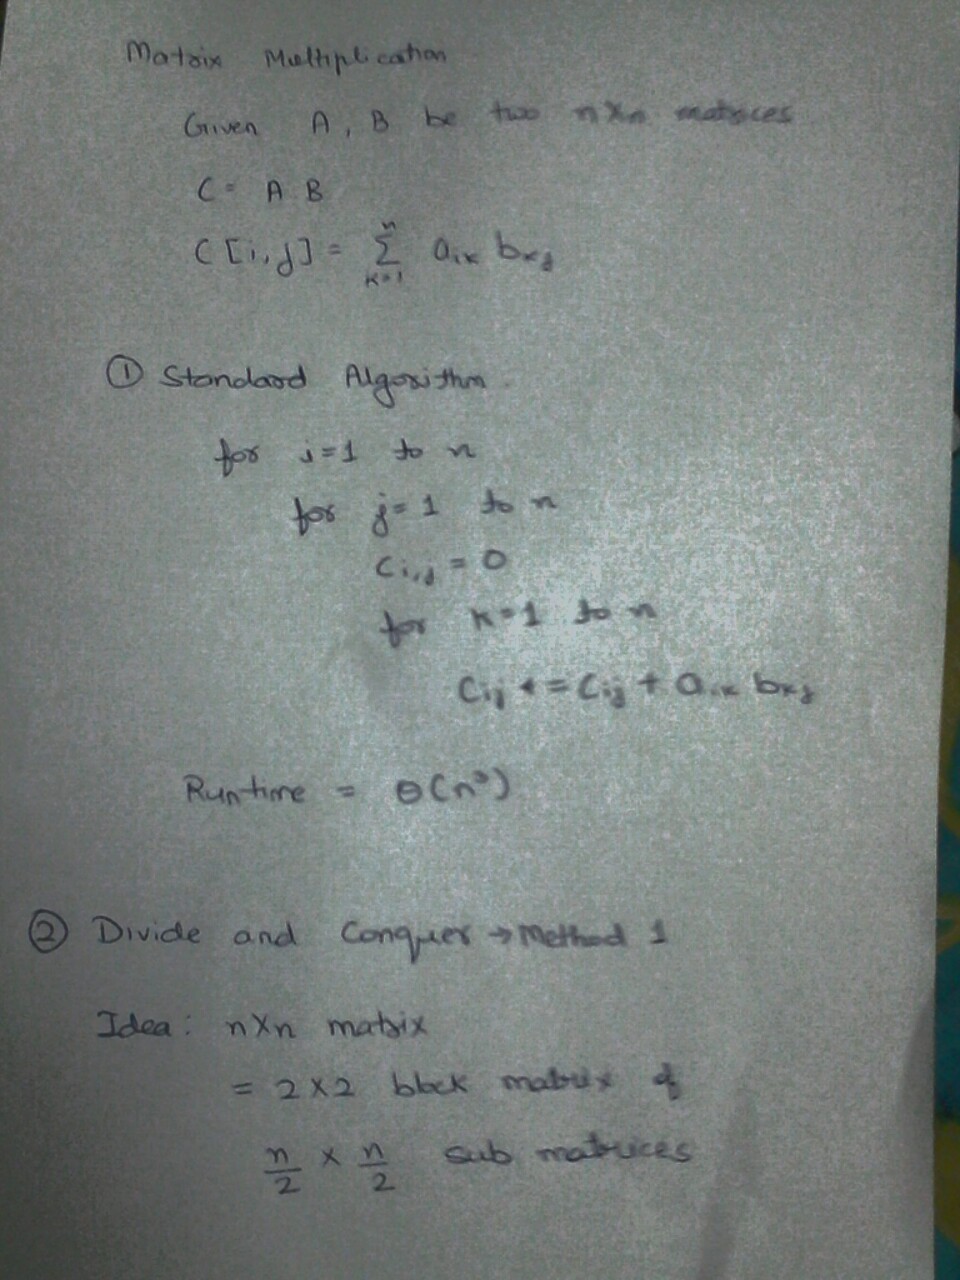 Matrix Multiplication
Given A, B be two nXn matrices
C = A B
C[i,j] = n Σ k=1 aik bkj
① Standard Algorithm.
for i=1 to n
for j=1 to n
Ci,j = 0
for k=1 to n
Cij += Cij + aik bkj
Runtime = θ(n³)
② Divide and Conquer → Method 1
Idea: nXn matrix
= 2X2 block matrix of
n/2 X n/2 sub matrices